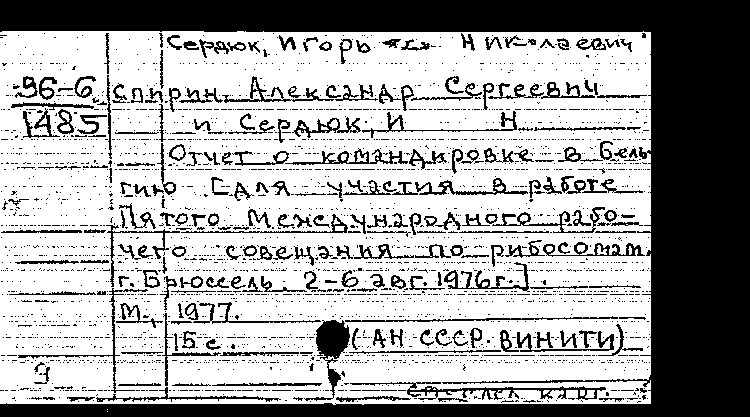 Сердюк, Игорь Николаевич
96-6
1485
Спирин, Александр Сергеевич
и Сердюк, И Н
Отчет о командировке в Бель-
гию [для участия в работе
Пятого Международного рабо-
чего совещания по рибосомам.
г. Брюссель. 2-6 авг. 1976г.].
М., 1977.
15 с. (АН СССР. ВИНИТИ)
9
карт.